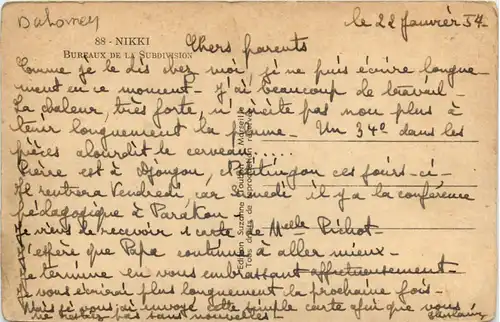 Dahomey
le 22 Janvier 54.
88 - NIKKI
BUREAUX DE LA SUBDIVISION
Chers parents
Comme je le dis chez moi, je ne puis écrire longue-
ment en ce moment - J'ai beaucoup de travail -
La chaleur, très forte, n'incite pas non plus à
tenir longuement la plume - Un 34° dans les
pièces alourdit le cerveau.....
Pierre est à Djougou, Natitingou ces jours-ci -
Il rentrera Vendredi car Samedi il y a la conférence
pédagogique à Parakou -
Je viens de recevoir 1 carte de Melle Pichot -
J'espère que Papa continue à aller mieux -
Je termine en vous embrassant affectueusement -
Je vous écrirai plus longuement la prochaine fois -
Mais je vous ai envoyé cette simple carte afin que vous
ne restiez pas sans nouvelles -
Edition Suzanne Marseille
Tous droits de reproduction réservés